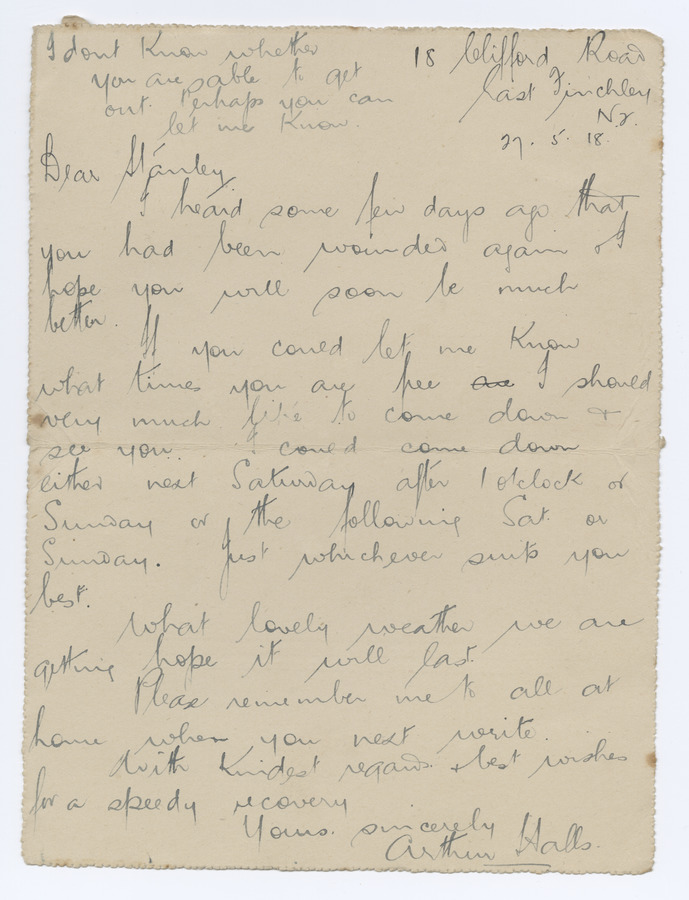 I dont Know whether
you are able to get
out. Perhaps you can
let me Know
18 Clifford Road
East Finchley
N2.
27. 5. 18.
Dear Stanley,
I heard some few days ago that
you had been wounded again & I
hope you will soon be much
better.
If you could let me Know
what times you are free are I should
very much like to come down &
see you. I could come down
either next Saturday after 1 o'clock or
Sunday or the following Sat. or
Sunday. Just whichever suits you
best.
What lovely weather we are
getting hope it will last.
Please remember me to all at
home when you next write.
With Kindest regards & best wishes
for a speedy recovery
Yours. sincerely
Arthur Halls.